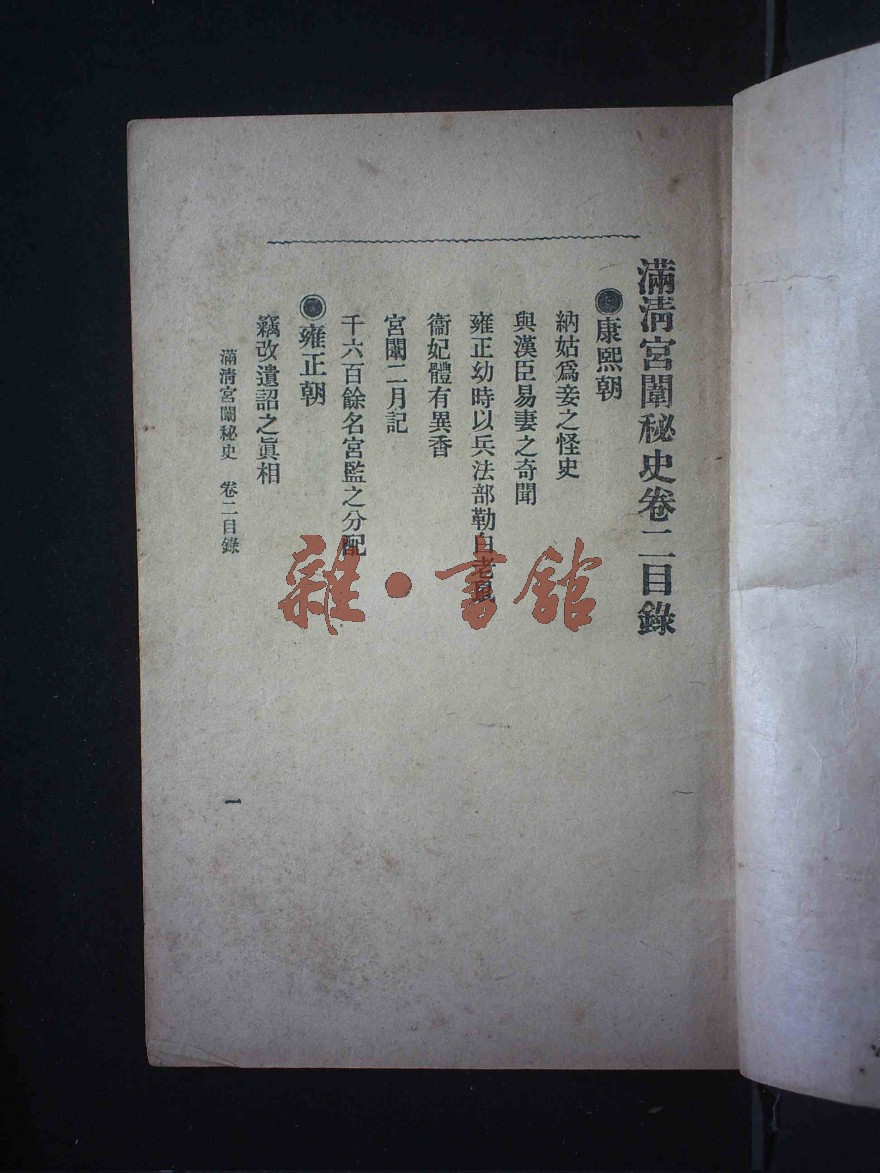 滿淸宮闈秘史卷二目錄
康熙朝
納姑爲妾之怪史
與漢臣易妻之奇聞
雍正幼時以兵法部勒白老鼠
衞妃體有異香
宮闈二月記
千六百餘名宮監之分配
雍正朝
竊改遺詔之眞相
滿淸宮闈秘史 卷二目錄
一
雜·書館